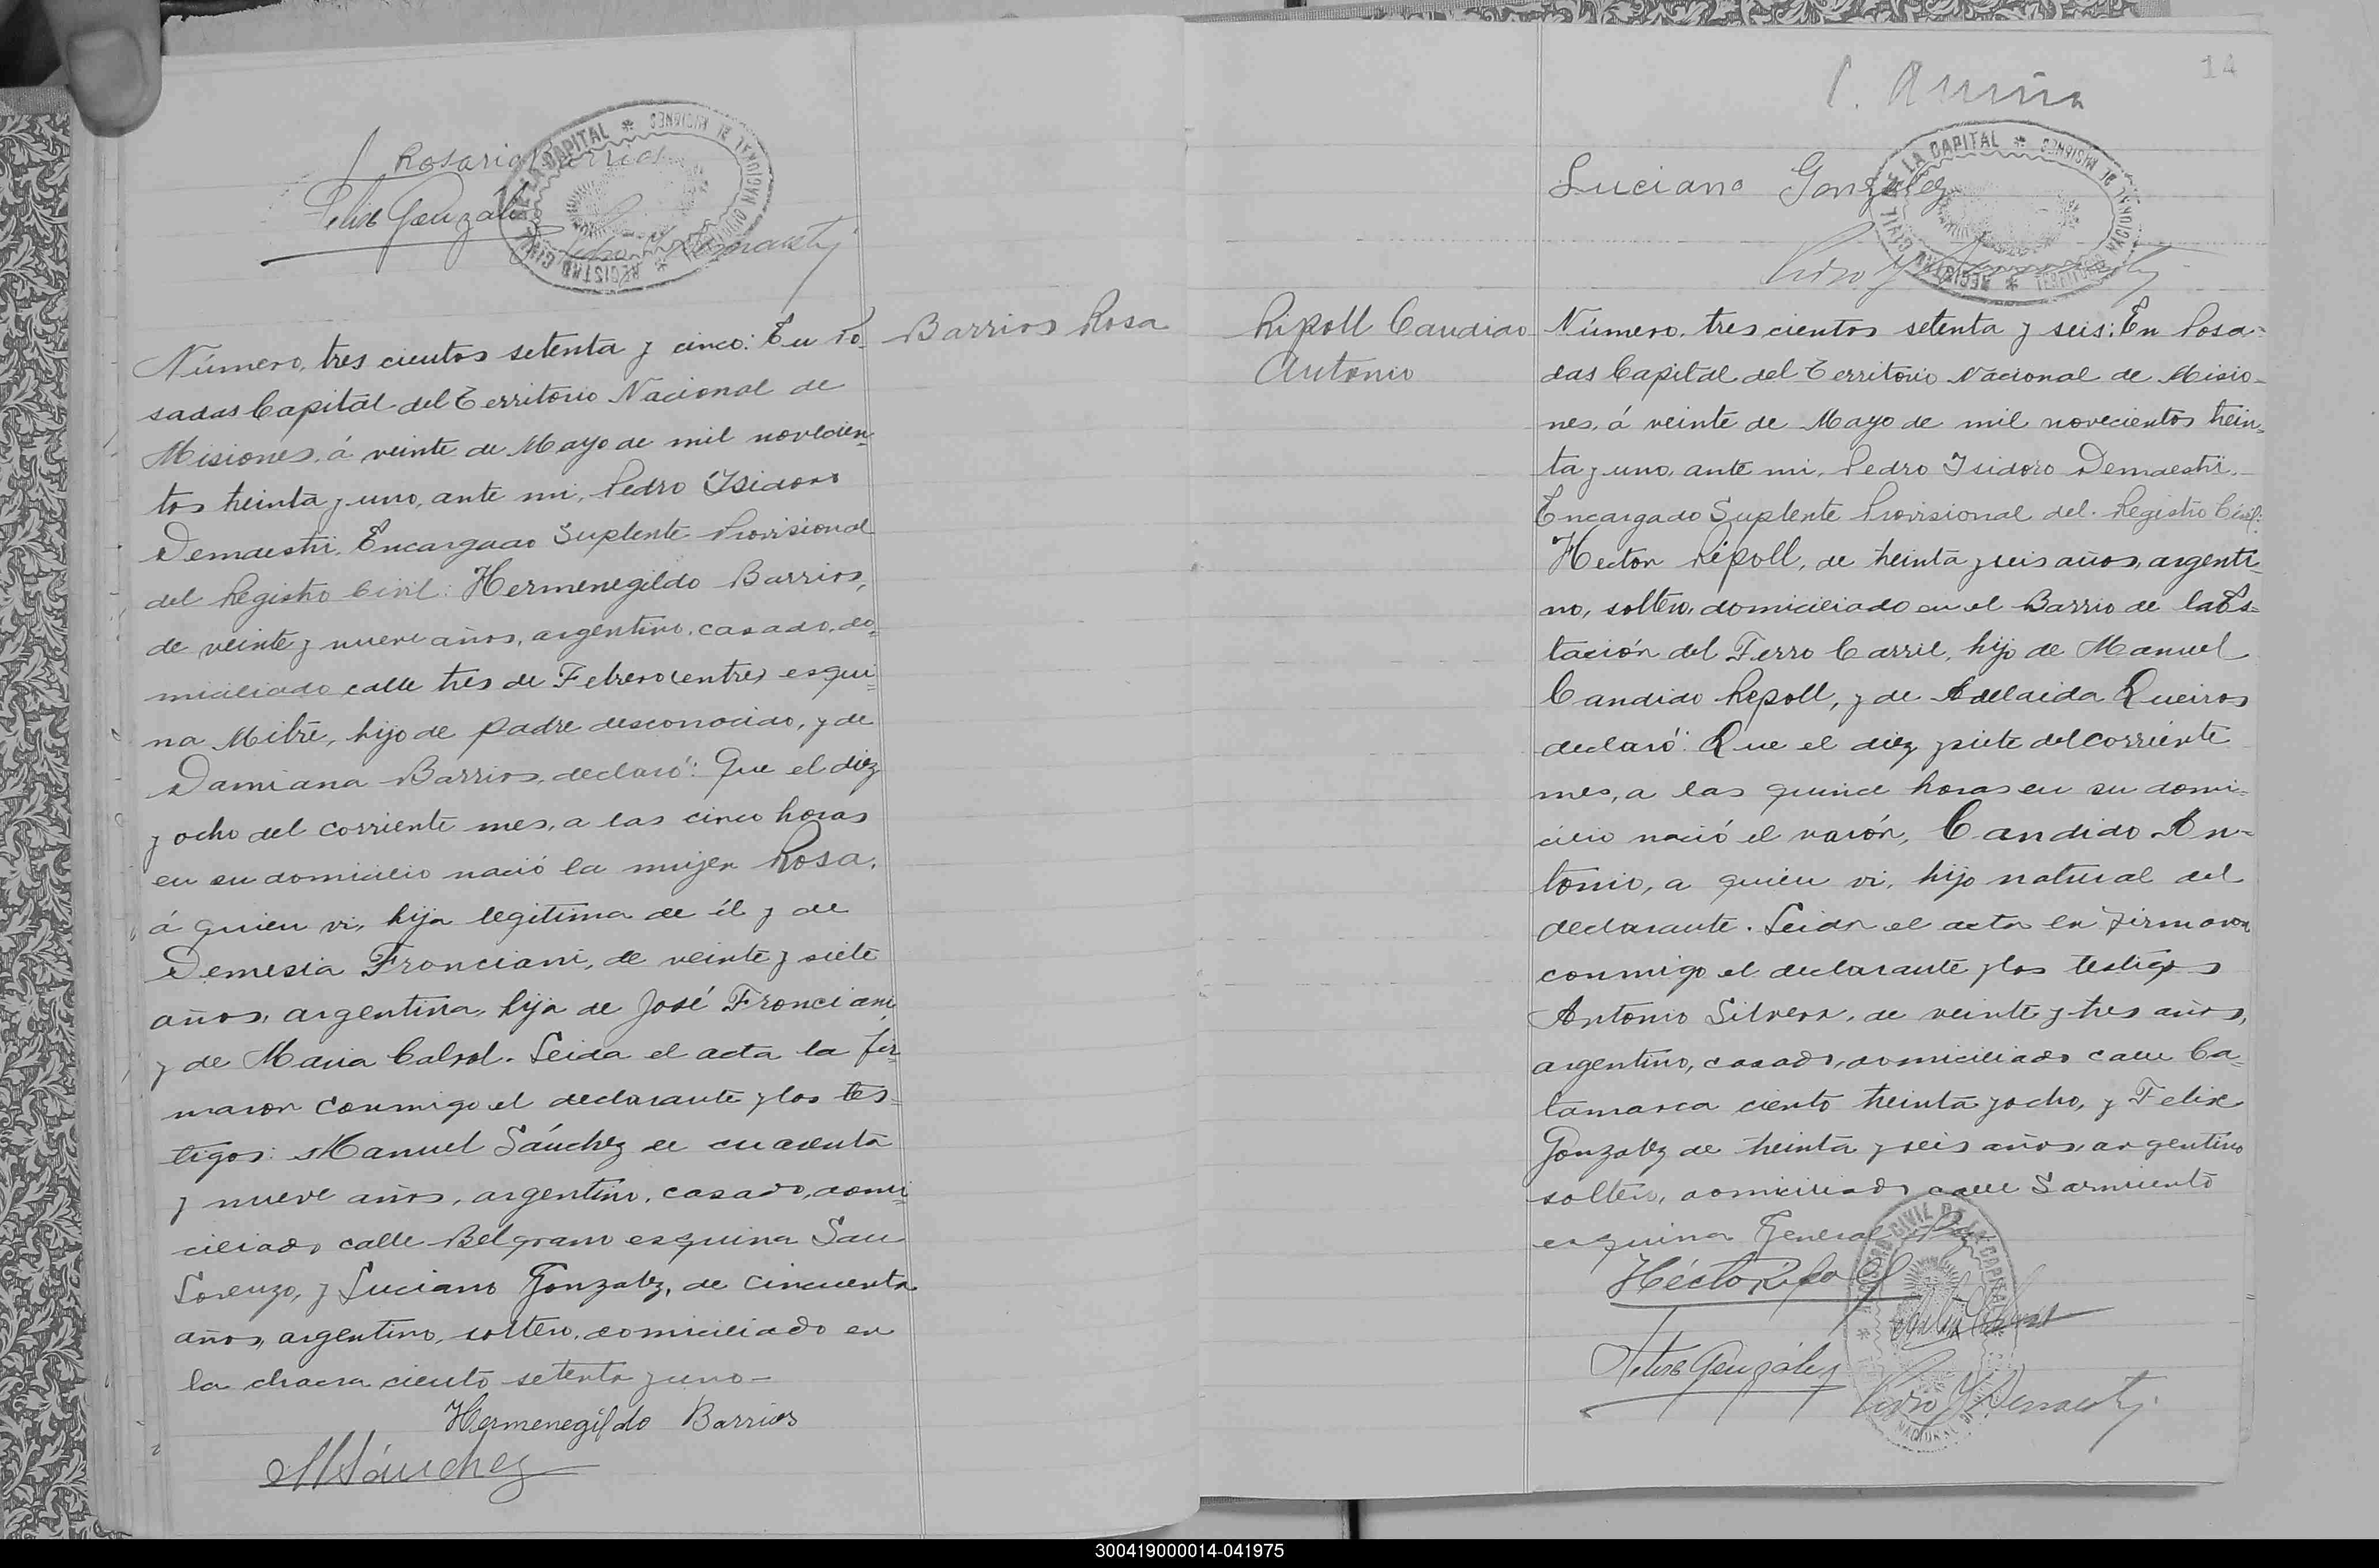 Rosario Barrios
Felix Gonzalez
REGISTRO CIVIL DE LA CAPITAL * TERRITORIO NACIONAL DE MISIONES *
Número, tres cientos setenta y cinco: En Po-
sadas Capital del Territorio Nacional de
Misiones, á veinte de Mayo de mil novecien-
tos treinta y uno, ante mi, Pedro Isidoro
Demaestri, Encargado Suplente Provisional
del Registro Civil: Hermenegildo Barrios,
de veinte y nueve años, argentino, casado, do-
miciliado calle tres de Febrero (entre) esqui-
na Mitre, hijo de padre desconocido, y de
Damiana Barrios, declaró: Que el diez
y ocho del corriente mes, a las cinco horas
en su domicilio nació la mujer Rosa,
á quien vi, hija legitima de él y de
Demesia Fronciani, de veinte y siete
años, argentina, hija de José Fronciani
y de Maria Cabral. Leida el acta la fir-
maron conmigo el declarante y los tes-
tigos: Manuel Sánchez de cuarenta
y nueve años, argentino, casado, domi-
ciliado calle Belgrano esquina San
Lorenzo, y Luciano Gonzalez, de cincuenta
años, argentino, soltero, domiciliado en
la chacra ciento setenta y uno-
Hermenegildo Barrios
M Sánchez
Barrios Rosa
14
Luciano Gonzalez
REGISTRO CIVIL DE LA CAPITAL * TERRITORIO NACIONAL DE MISIONES *
Ripoll Candido
Antonio
Número, tres cientos setenta y seis: En Posa-
das Capital del Territorio Nacional de Misio-
nes, á veinte de Mayo de mil novecientos trein-
ta y uno, ante mi, Pedro Isidoro Demaestri,
Encargado Suplente Provisional del Registro Civil:
Hector Ripoll, de treinta y seis años, argenti-
no, soltero, domiciliado en el Barrio de la Es-
tación del Ferro Carril, hijo de Manuel
Candido Ripoll, y de Adelaida Queiros
declaró: Que el diez y siete del corriente
mes, a las quince horas en su domi-
cilio nació el varón, Candido An-
tonio, a quien vi, hijo natural del
declarante. Leida el acta la firmaron
conmigo el declarante y los testigos
Antonio Silvera, de veinte y tres años,
argentino, casado, domiciliado calle Ca-
tamarca ciento treinta y ocho, y Felix
Gonzalez de treinta y seis años, argentino
soltero, domiciliado calle Sarmiento
esquina General Paz
Héctor Ripoll
Felix González
Pedro I Demaestri
300419000014-041975